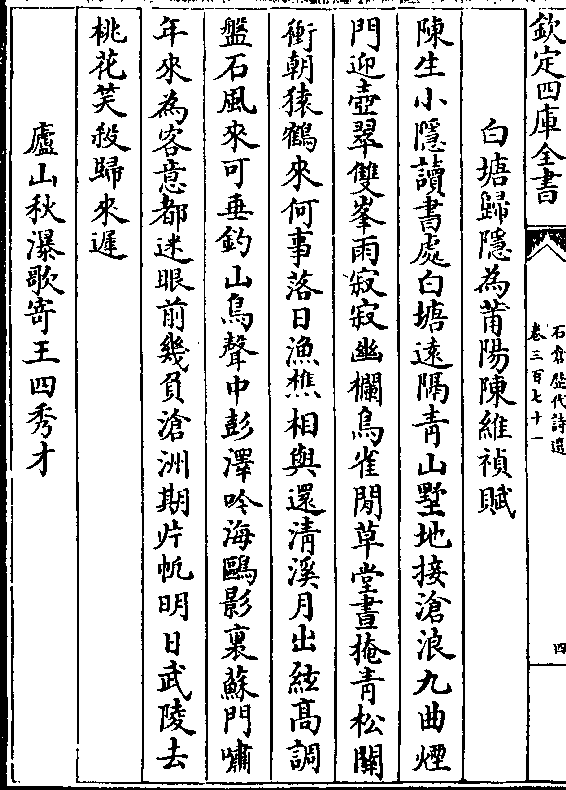 欽定四庫全書
石倉歷代詩選
卷三百七十一
四
白塘歸隱為莆陽陳維禎賦
陳生小隱讀書處白塘遠隔青山墅地接滄浪九曲煙
門迎壺翠雙峯雨寂寂幽欄鳥雀閒草堂晝掩青松關
衝朝猿鶴來何事落日漁樵相與還清溪月出絃高調
盤石風來可垂釣山鳥聲中彭澤吟海鷗影裏蘇門嘯
年來為客意都迷眼前幾負滄洲期片帆明日武陵去
桃花笑殺歸來遲
廬山秋瀑歌寄王四秀才